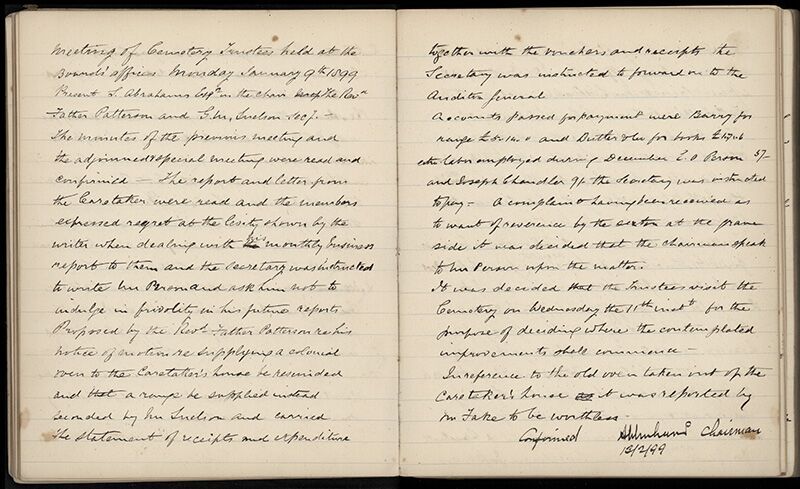 Meeting of Cemetery Trustees held at the
Board's office Monday January 9th 1899
Present S. Abrahams Esqr in the chair The Revn
Father Patterson and G.W. Snelson Secy. —
The minutes of the previous meeting and
the adjourned special meeting were read and
confirmed — The report and letter from
the Caretaker were read and the members
expressed regret at the levity shown by the
writer when dealing with his monthly business
report to them and the Secretary was instructed
to write Mr Person and ask him not to
indulge in frivolity in his future reports
Proposed by the Revd. Father Patterson re his
notice of motion re supplying a colonial
oven to the Caretaker's house be rescinded
and that a range be supplied instead
seconded by Mr Snelson and carried
The statement of receipts and expenditure
together with the vouchers and receipts the
Secretary was instructed to forward on to the
Auditor General
Accounts passed for payment were Barry for
range and Butler for books
labor employed during December Person 5/-
and Joseph Chandler 9/- the Secretary was instructed
to pay — A complaint having been received as
to want of reverence by the sexton at the grave
side it was decided that the chairman speak
to Mr Person upon the matter.
It was decided that the trustees visit the
Cemetery on Wednesday the 11th instt for the
purpose of deciding where the contemplated
improvements shall commence —
In reference to the old oven taken out of the
Caretaker's house it was reported by
Mr Fake to be worthless.
Confirmed Chairman
13/2/99